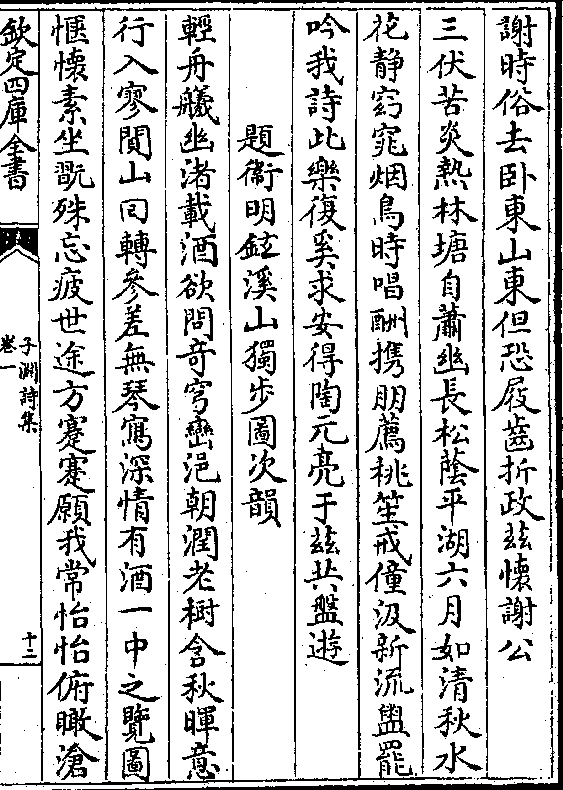 謝時俗去卧東山東但恐屐齒折政兹懷謝公
三伏苦炎熱林塘自蕭幽長松蔭平湖六月如清秋水
花靜窈窕烟鳥時唱酬携朋薦桃笙戒僮汲新流盥罷
吟我詩此樂復奚求安得陶元亮于兹共盤遊
題衞明鉉溪山獨步圖次韻
輕舟艤幽渚載酒欲問奇穹巒浥朝潤老樹含秋暉意
行入寥閴山囘轉參差無琴寫深情有酒一中之覽圖
愜懷素坐翫殊忘疲世途方蹇蹇願我常怡怡俯瞰滄
欽定四庫全書
子淵詩集
卷一
十二